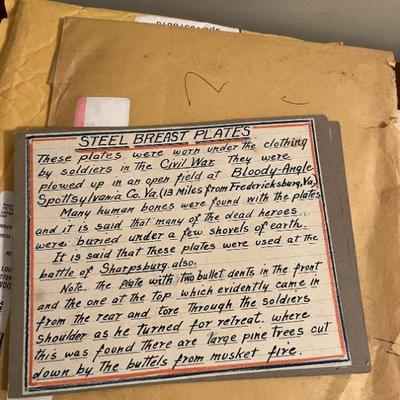 STEEL BREAST PLATES
These plates were worn under the clothing
by soldiers in the Civil War They were
plowed up in an open field at Bloody-Angle
Spottsylvania Co. Va. (13 Miles from Fredericksburg, Va)
Many human bones were found with the plates
and it is said that many of the dead heroes
were buried under a few shovels of earth.
It is said that these plates were used at the
battle of Sharpsburg also.
Note. The plate with two bullet dents in the front
and the one at the top which evidently came in
from the rear and tore through the soldiers
shoulder as he turned for retreat. where
this was found there are large pine trees cut
down by the buttels from musket fire.